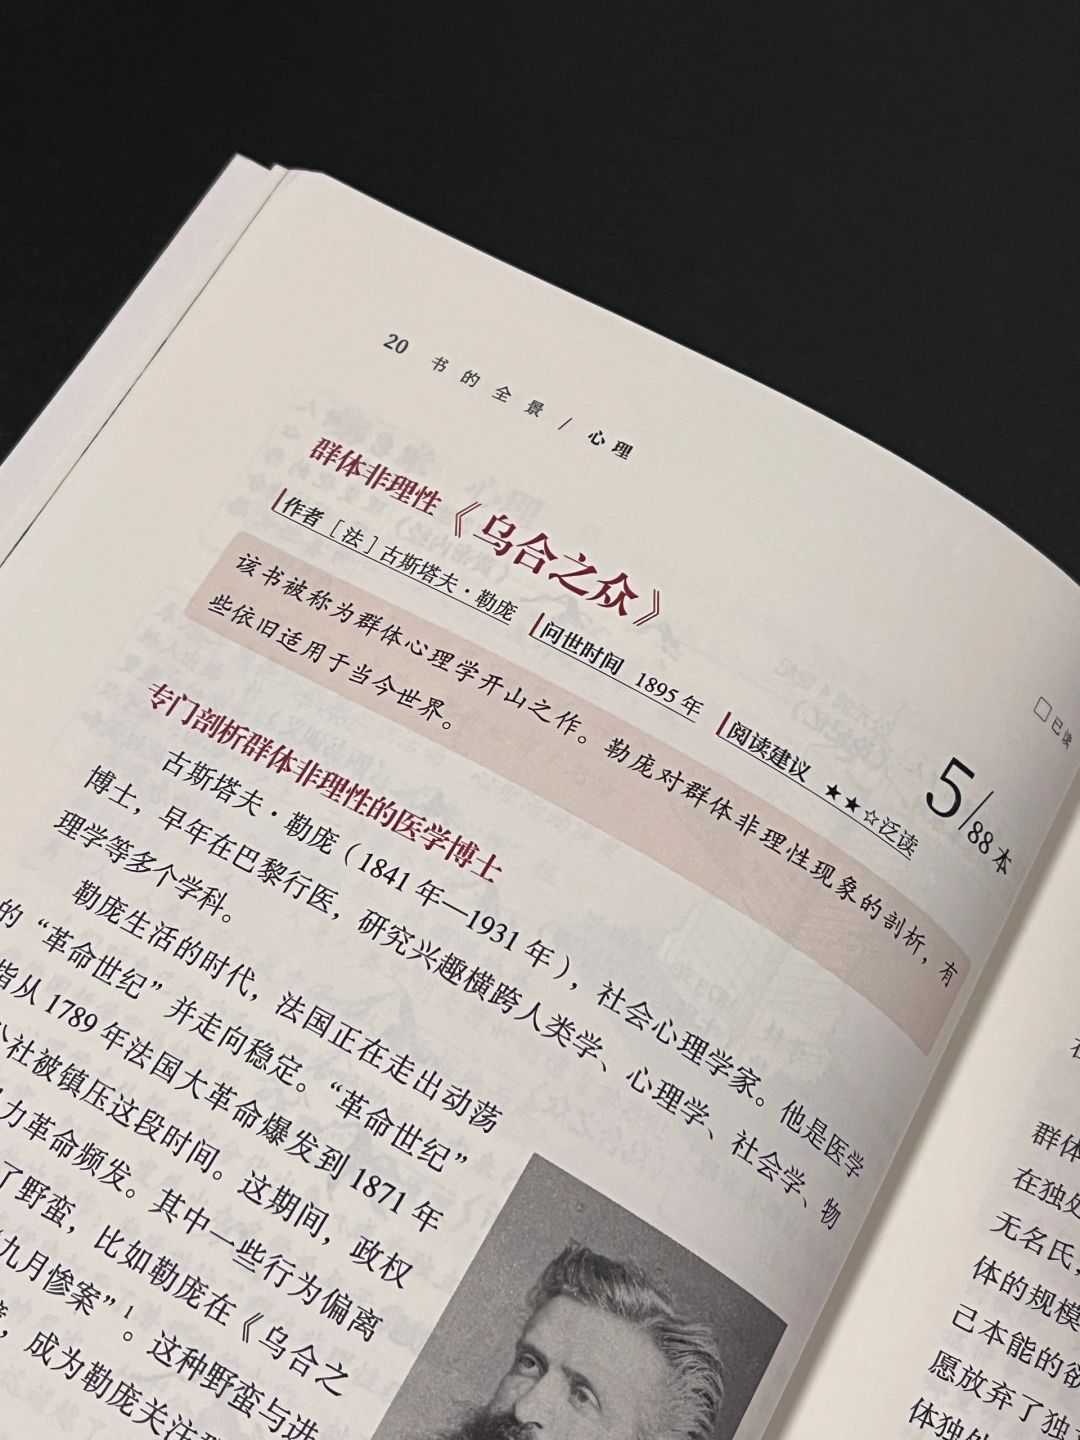 20 书的全景 / 心理
群体非理性《乌合之众》
作者 [法] 古斯塔夫·勒庞 问世时间 1895 年 阅读建议 ★★☆泛读
□已读
5/88 本
该书被称为群体心理学开山之作。勒庞对群体非理性现象的剖析，有
些依旧适用于当今世界。
专门剖析群体非理性的医学博士
古斯塔夫·勒庞（1841 年—1931 年），社会心理学家。他是医学
博士，早年在巴黎行医，研究兴趣横跨人类学、心理学、社会学、物
理学等多个学科。
勒庞生活的时代，法国正在走出动荡
的“革命世纪”并走向稳定。“革命世纪”
指从 1789 年法国大革命爆发到 1871 年
公社被镇压这段时间。这期间，政权
力革命频发。其中一些行为偏离
了野蛮，比如勒庞在《乌合之
“九月惨案”1。这种野蛮与进
，成为勒庞关注
群体
在独处
无名氏，
体的规模
己本能的欲
愿放弃了独
体独处